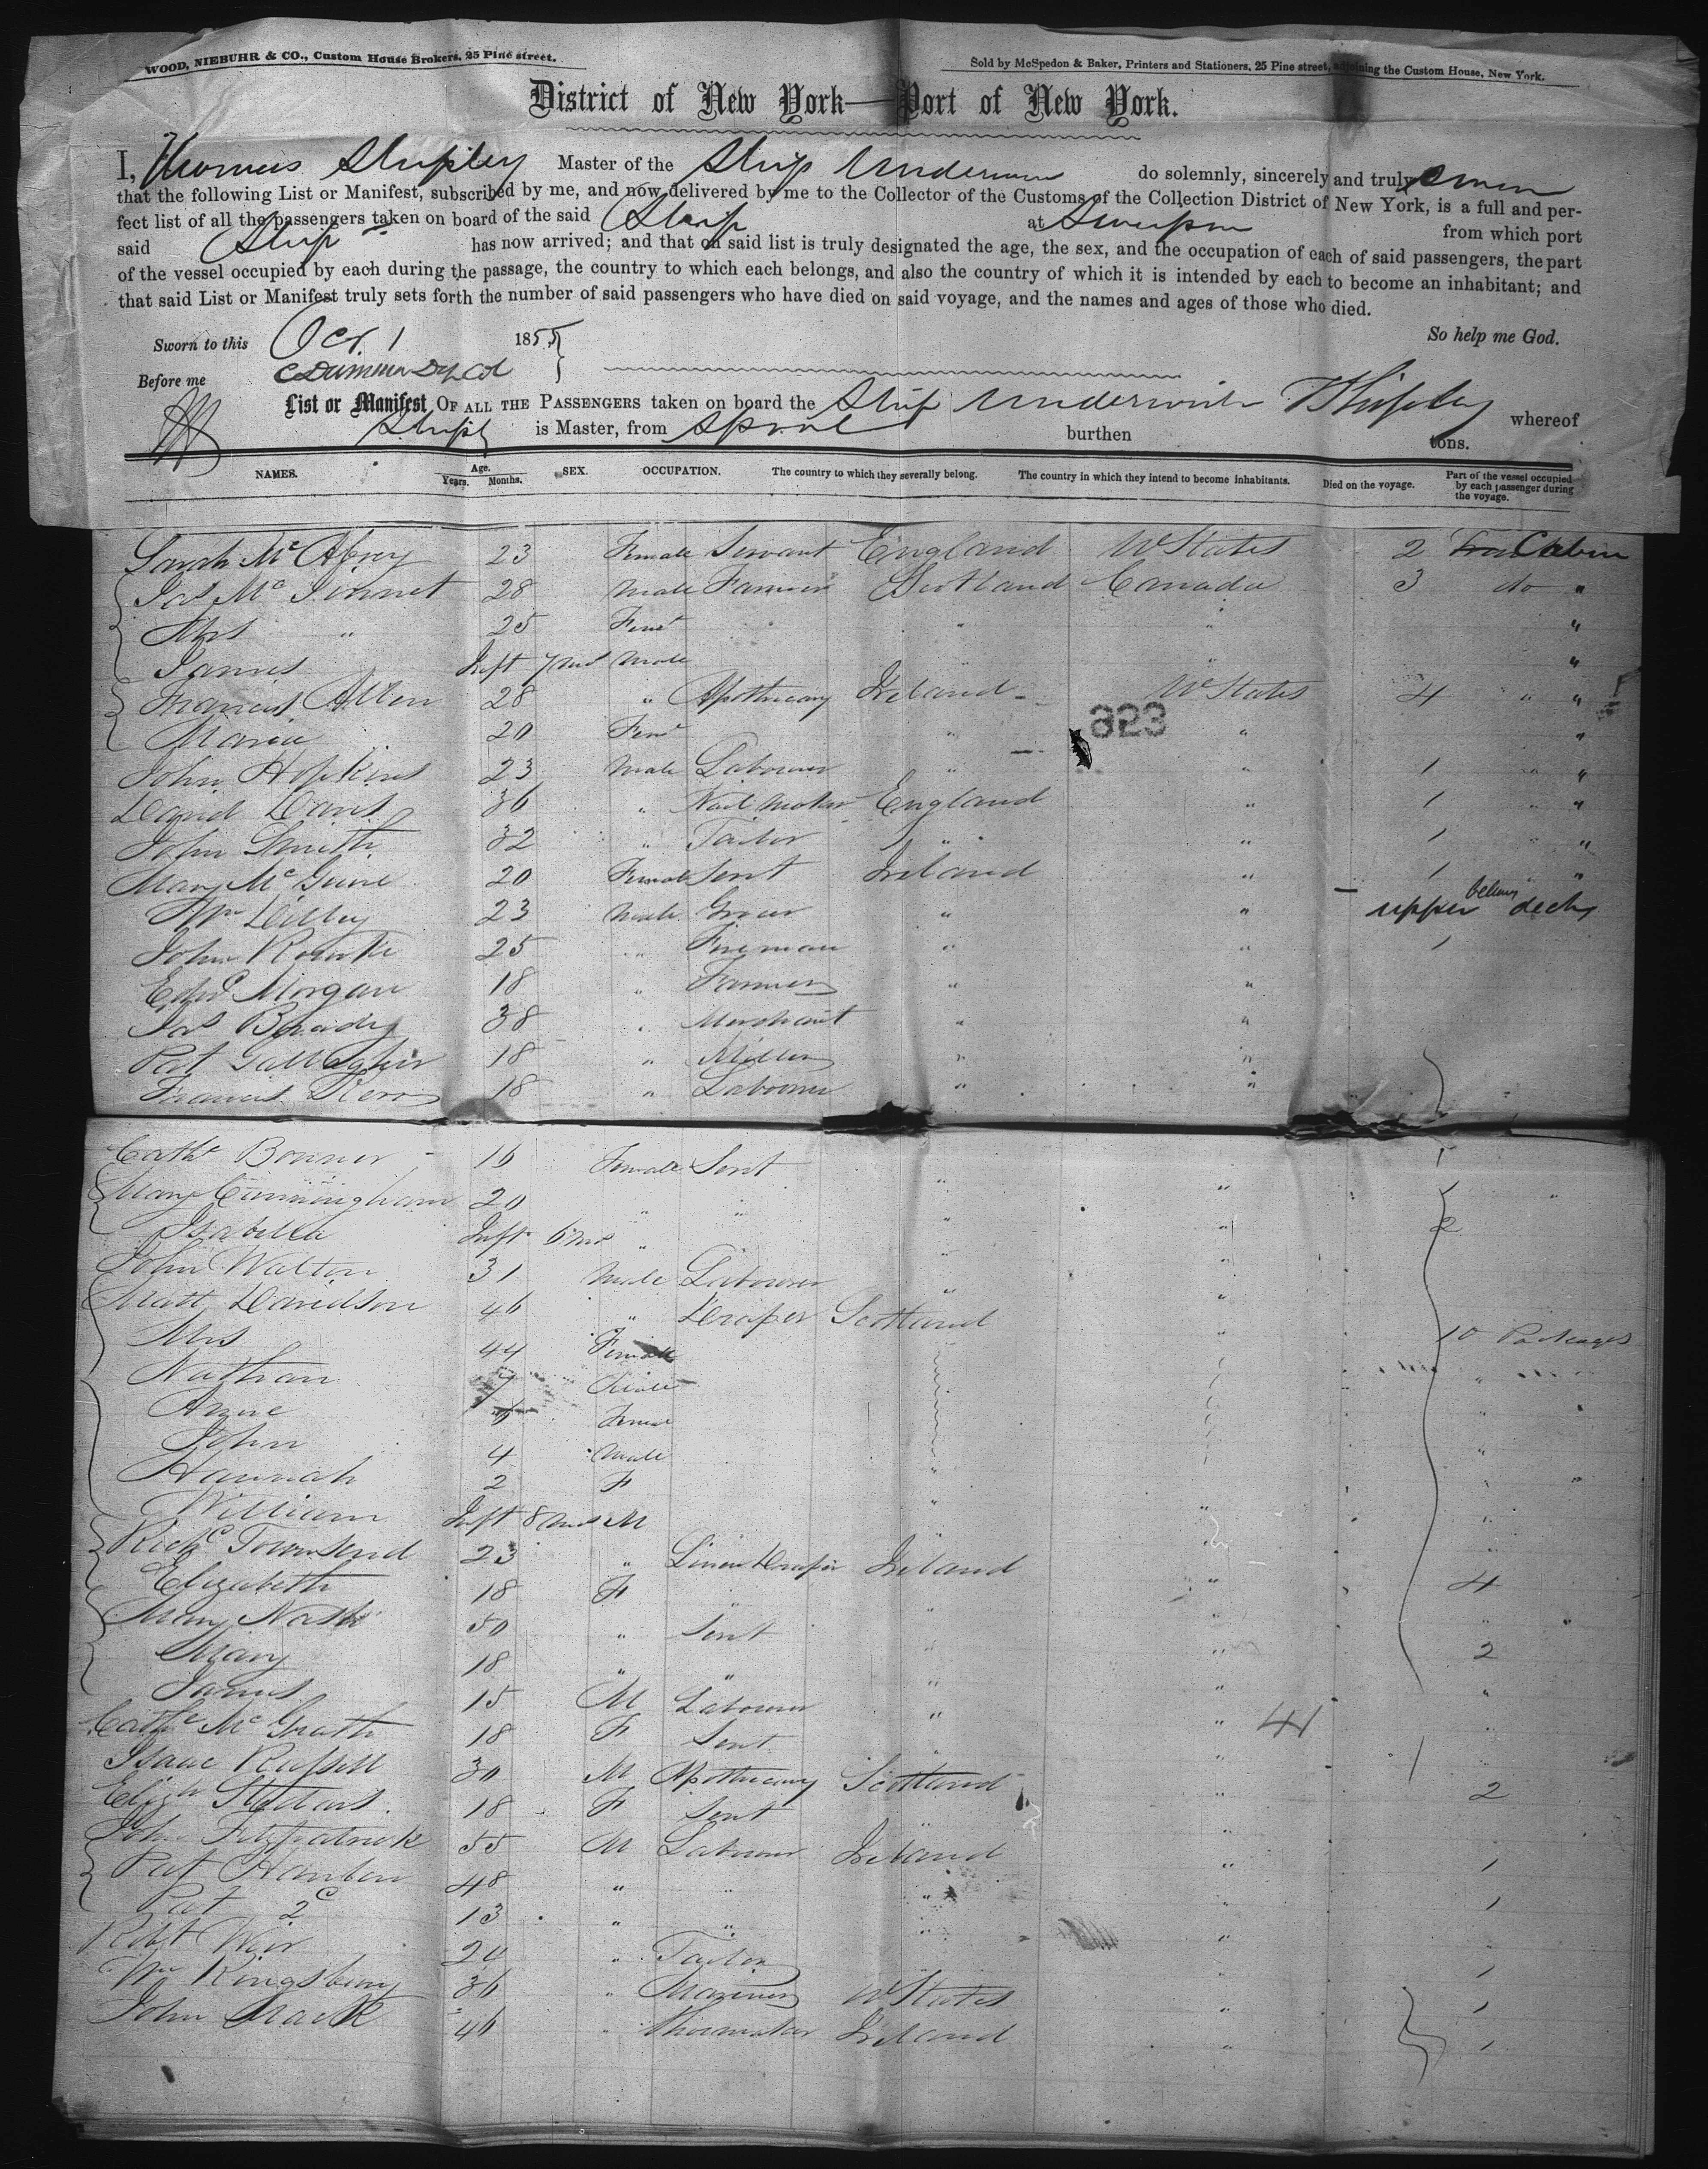 WOOD, NIEBUHR & CO., Custom House Brokers, 25 Pine street.
Sold by McSpedon & Baker, Printers and Stationers, 25 Pine street, adjoining the Custom House, New York.
District of New York—Port of New York.
I, Thomas Shipley Master of the Ship do solemnly, sincerely and truly
that the following List or Manifest, subscribed by me, and now delivered by me to the Collector of the Customs of the Collection District of New York, is a full and per-
fect list of all the passengers taken on board of the said Ship at from which port
said Ship has now arrived; and that on said list is truly designated the age, the sex, and the occupation of each of said passengers, the part
of the vessel occupied by each during the passage, the country to which each belongs, and also the country of which it is intended by each to become an inhabitant; and
that said List or Manifest truly sets forth the number of said passengers who have died on said voyage, and the names and ages of those who died.
So help me God.
Sworn to this Oct. 1 1855
Before me
List or Manifest OF ALL THE PASSENGERS taken on board the Ship Underwriter T Shipley whereof
is Master, from burthen tons.
NAMES. Age. Years. Months. SEX. OCCUPATION. The country to which they severally belong. The country in which they intend to become inhabitants. Died on the voyage. Part of the vessel occupied by each passenger during the voyage.
Sarah 23 Female Servant England U States 2 Cabin
Jas 28 Male Farmer Scotland Canada 3 do "
Mrs " 25 Fem " " "
James Inft 7 Mos Male " " "
Francis Allen 28 " Apothecary Ireland U States 4 " "
Maria 20 Fem " " "
323
John Hopkins 23 Male Labourer " " 1 " "
David Davis 36 " Nail Maker England " 1 " "
John Smith 32 " Tailor " " 1 "
Mary McGuire 20 Female Servt Ireland " 1 " "
Wm Dilley 23 Male Grocer " " upper below deck
John Rourke 25 " Fireman " " 1
Edwd Morgan 18 " Farmer " "
Jas Brady 38 " Merchant " "
Pat Gallagher 18 " Miller " "
Francis Kerr 18 " Labourer " "
Cathe Bonner 16 Female Servt " " 1
Mary Cunningham 20 " " " " "
Isabella Inft 6 Mos " " " 2
John Walton 31 Male Labourer " "
Matt Davidson 46 " Draper Scotland " 10 Packages
Mrs 44 Female
Nathan 7 Male
Anne 6 Female
John 4 Male
Hannah 2 F "
William Inft 8 Mos M " "
Richd Townsend 23 " Linen Draper Ireland "
Elizabeth 18 F " " " 4
Mary Nash 50 " Servt " "
Mary 18 " " " " 2
James 15 M Labourer " "
Cathe McGrath 18 F Servt " " 41
Isaac Russell 30 M Apothecary Scotland " 1
Elizh 18 F Servt " " 2
John Fitzpatrick 55 M Labourer Ireland "
Pat Hanlon 48 " " " " 1
Pat 2d 13 " " " " 1
Robt Weir 24 " Tailor " "
Wm Kingsbury 36 " Mariner U States " 1
John 46 " Shoemaker Ireland " 1